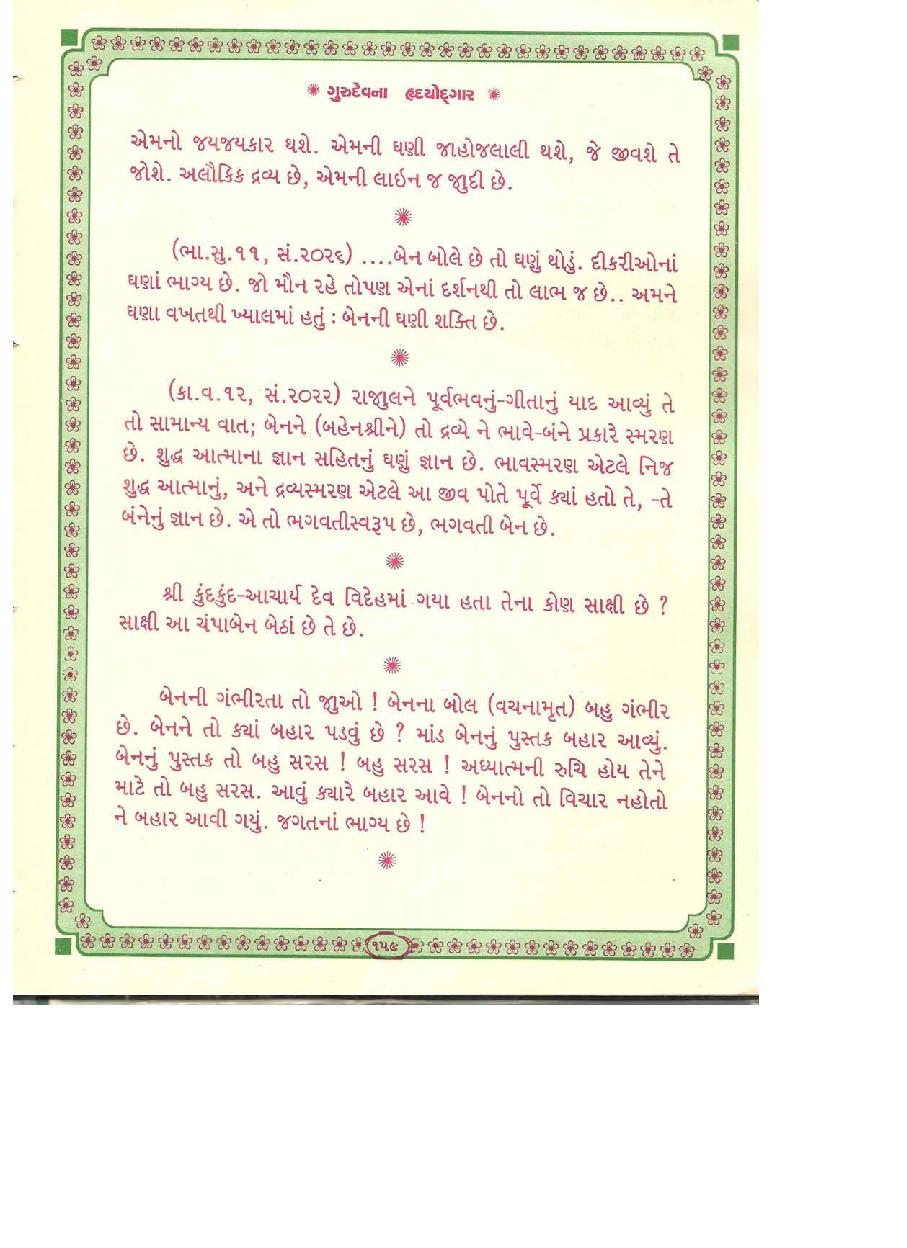 ગુરુદેવના હૃદયોદ્ગાર
એમનો જયજયકાર થશે. એમની ઘણી જાહોજલાલી થશે, જે જીવશે તે
જોશે. અલૌકિક દ્રવ્ય છે, એમની લાઇન જ જાુદી છે.
(ભા.સુ.૧૧, સં.૨૦૨૬) ....બેન બોલે છે તો ઘણું થોડું. દીકરીઓનાં
ઘણાં ભાગ્ય છે. જો મૌન રહે તોપણ એનાં દર્શનથી તો લાભ જ છે.. અમને
ઘણા વખતથી ખ્યાલમાં હતું : બેનની ઘણી શક્તિ છે.
(કા.વ.૧૨, સં.૨૦૨૨) રાજાુલને પૂર્વભવનું-ગીતાનું યાદ આવ્યું તે
તો સામાન્ય વાત; બેનને (બહેનશ્રીને) તો દ્રવ્યે ને ભાવે-બંને પ્રકારે સ્મરણ
છે. શુદ્ધ આત્માના જ્ઞાન સહિતનું ઘણું જ્ઞાન છે. ભાવસ્મરણ એટલે નિજ
શુદ્ધ આત્માનું, અને દ્રવ્યસ્મરણ એટલે આ જીવ પોતે પૂર્વે ક્યાં હતો તે, -તે
બંનેનું જ્ઞાન છે. એ તો ભગવતીસ્વરૂપ છે, ભગવતી બેન છે.
શ્રી કુંદકુંદ-આચાર્ય દેવ વિદેહમાં ગયા હતા તેના કોણ સાક્ષી છે ?
સાક્ષી આ ચંપાબેન બેઠાં છે તે છે.
બેનની ગંભીરતા તો જાુઓ ! બેનના બોલ (વચનામૃત) બહુ ગંભીર
છે. બેનને તો ક્યાં બહાર પડવું છે ? માંડ બેનનું પુસ્તક બહાર આવ્યું.
બેનનું પુસ્તક તો બહુ સરસ ! બહુ સરસ ! અધ્યાત્મની રુચિ હોય તેને
માટે તો બહુ સરસ. આવું ક્યારે બહાર આવે ! બેનનો તો વિચાર નહોતો
ને બહાર આવી ગયું. જગતનાં ભાગ્ય છે !
૧૫૯